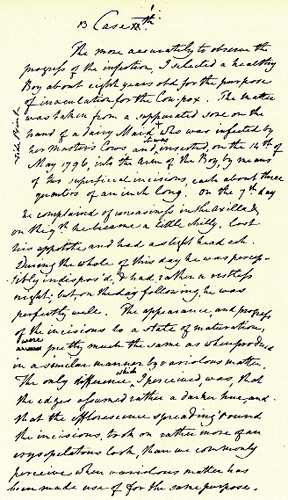 13 Case XXth
The more accurately to observe the
progress of the infection, I selected a healthy
Boy about eight years old for the purpose
of inoculation for the Cow-pox. The matter
was taken from a suppurated sore on the
hand of a dairy Maid who was infected by
her Master's Cows and inserted, on the 14th of
May 1796, into the Arm of the Boy, by means
of two superficial incisions, each about three
quarters of an inch long. On the 7th day
he complained of uneasiness in the axilla &
on the 9th he became a little chilly, lost
his appetite and had a slight head ach.
During the whole of this day he was percep-
tibly indispos'd, & had rather a restless
night; but on the day following, he was
perfectly well. The appearance, and progress
of the incisions to a state of maturation,
were pretty much the same as when produced
in a similar manner by variolous matter.
The only difference, which I perceived, was, that
the edges assumed rather a darker hue, and
that the efflorescence spreading round
the incisions, took on rather more of an
erysipelatous look, than we commonly
perceive when variolous matter has
been made use of for the same purpose.